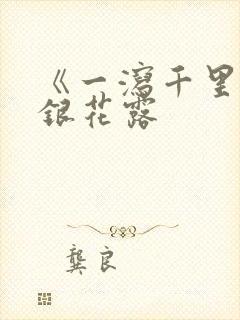 《一泻千里
銀花露
龔良